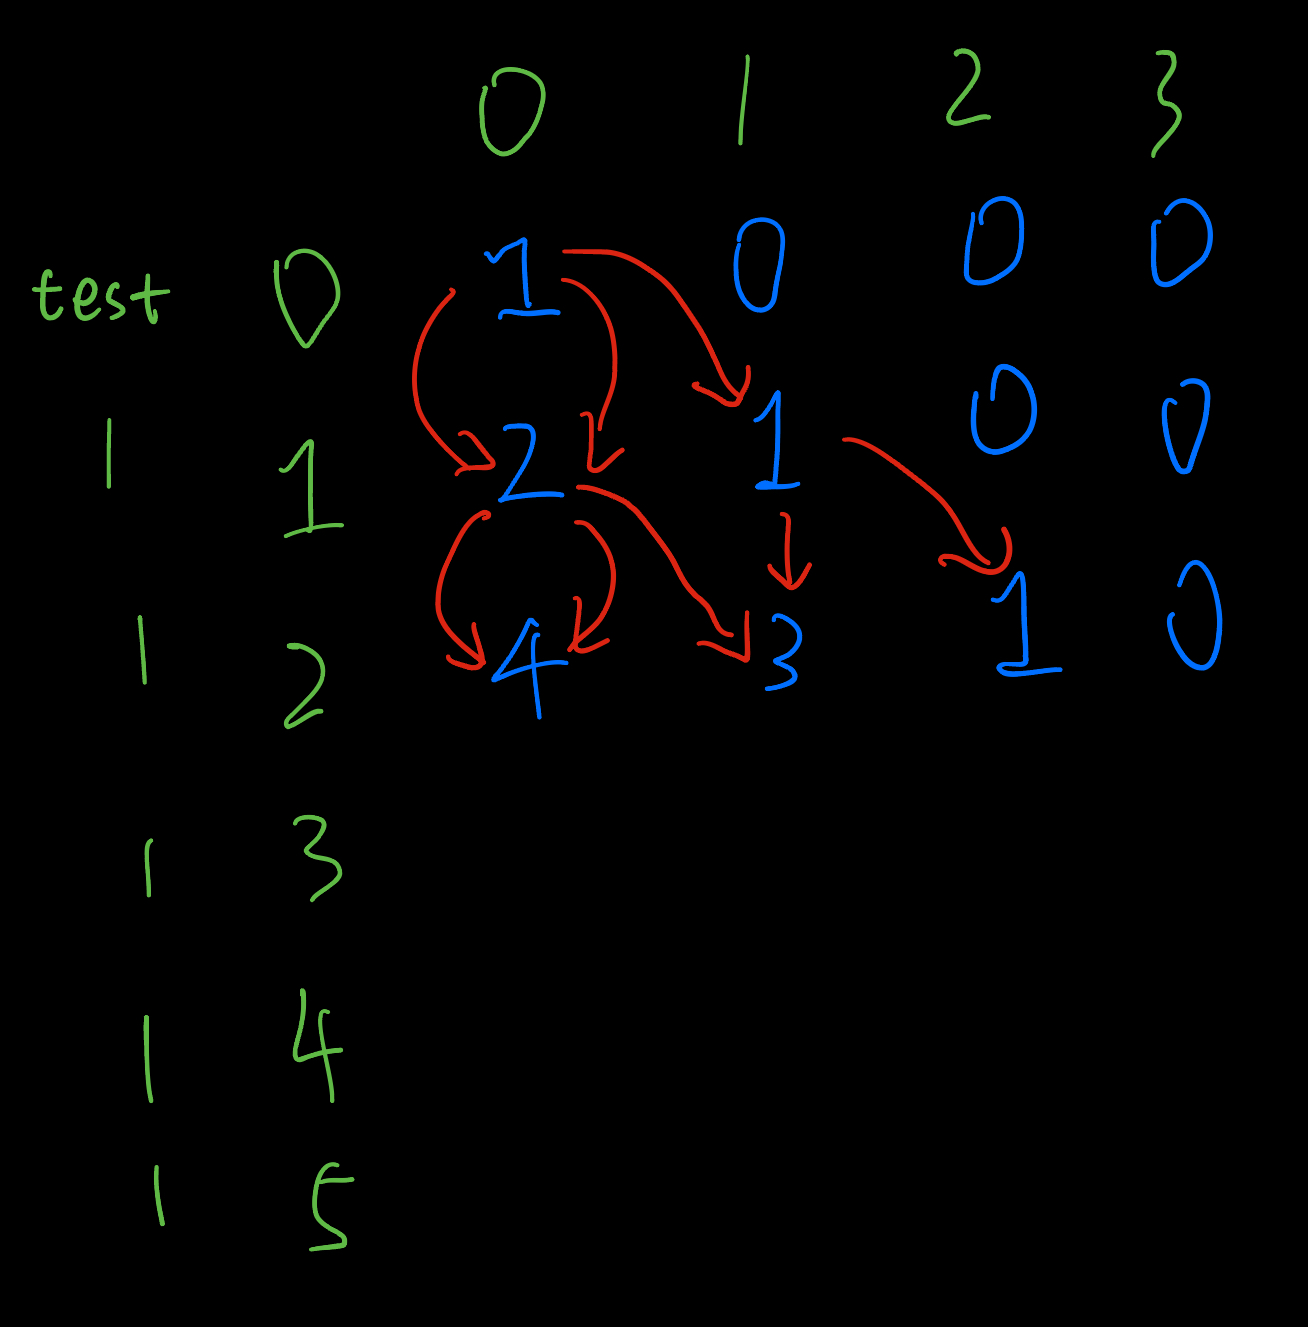 0 1 2 3
test 0 1 0 0 0
1 1 2 1 0 0
1 2 4 3 1 0
1 3
1 4
1 5